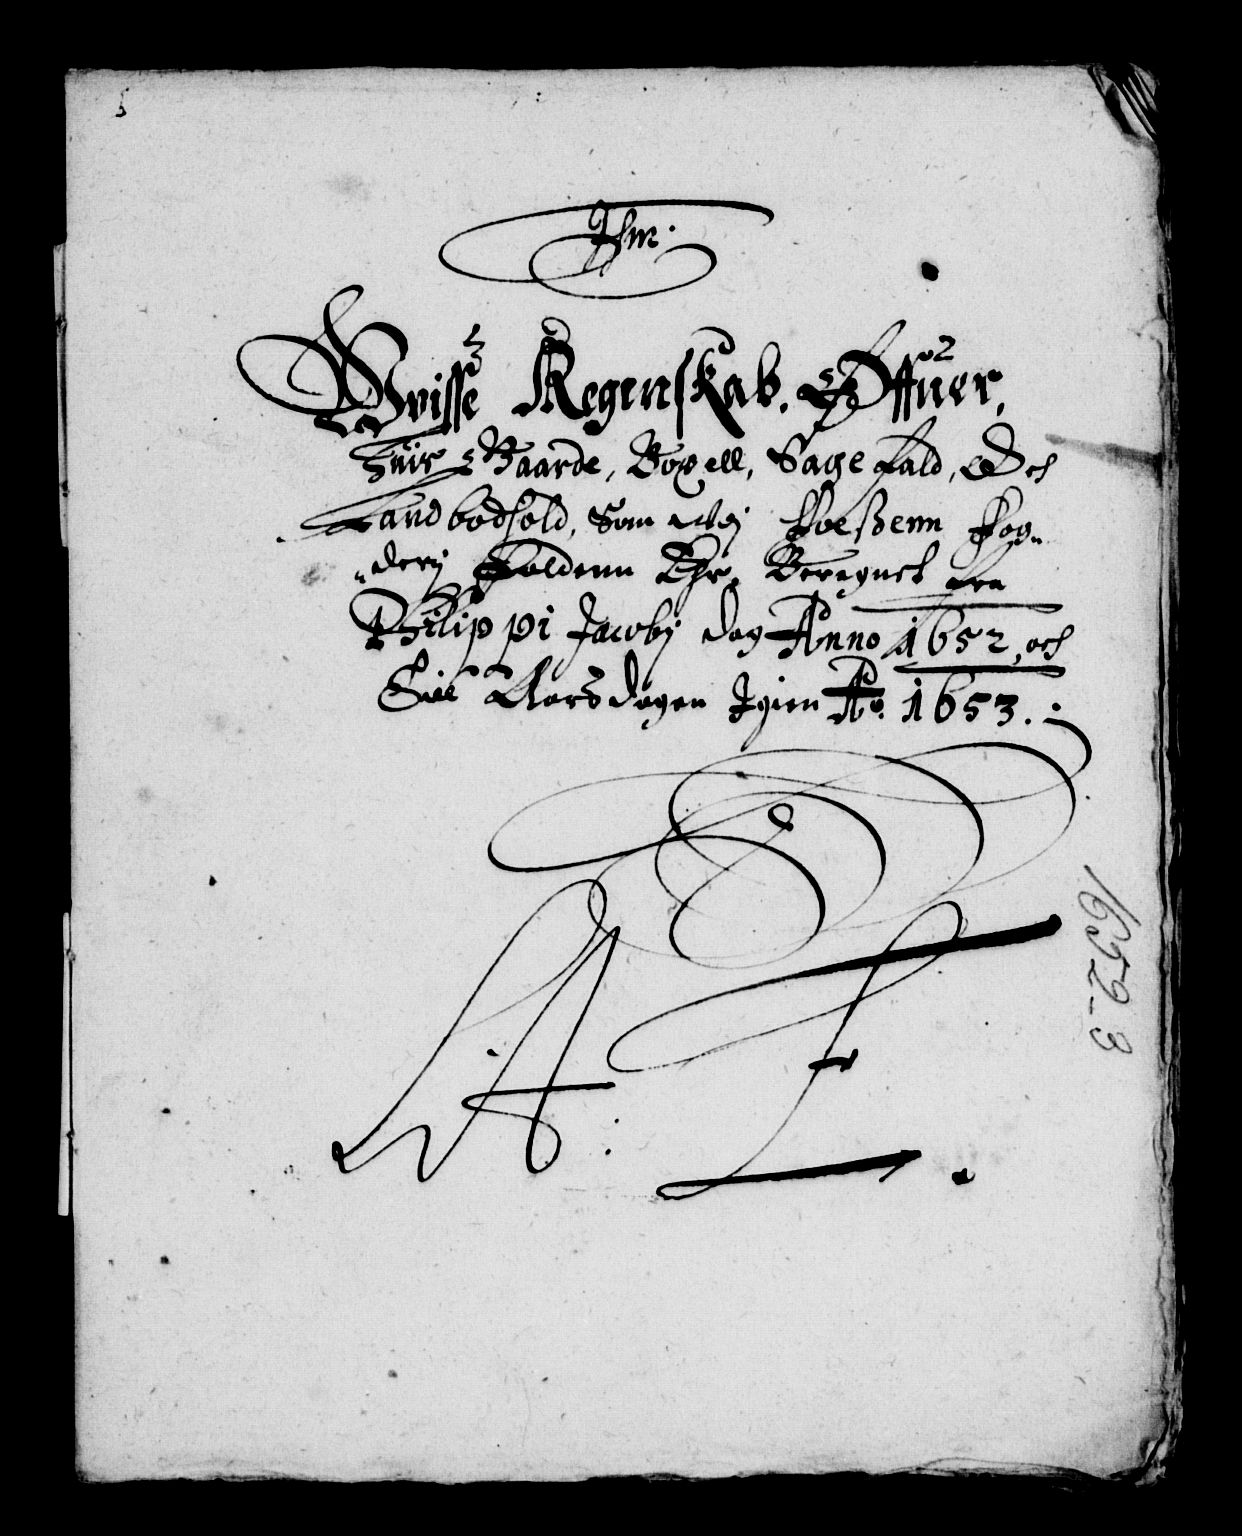 Wvisse Regenskab. Offuer,
Huis Gaarde, Boxell, Sagefald, Och
Landbodhold, Som udj Foeßenn Fog„
„derij Faldenn Ehr, Beregnet fra
Philippi Jacobj dag Anno 1652, och
Till Aars dagen Igien Ao. 1653.
1652-3